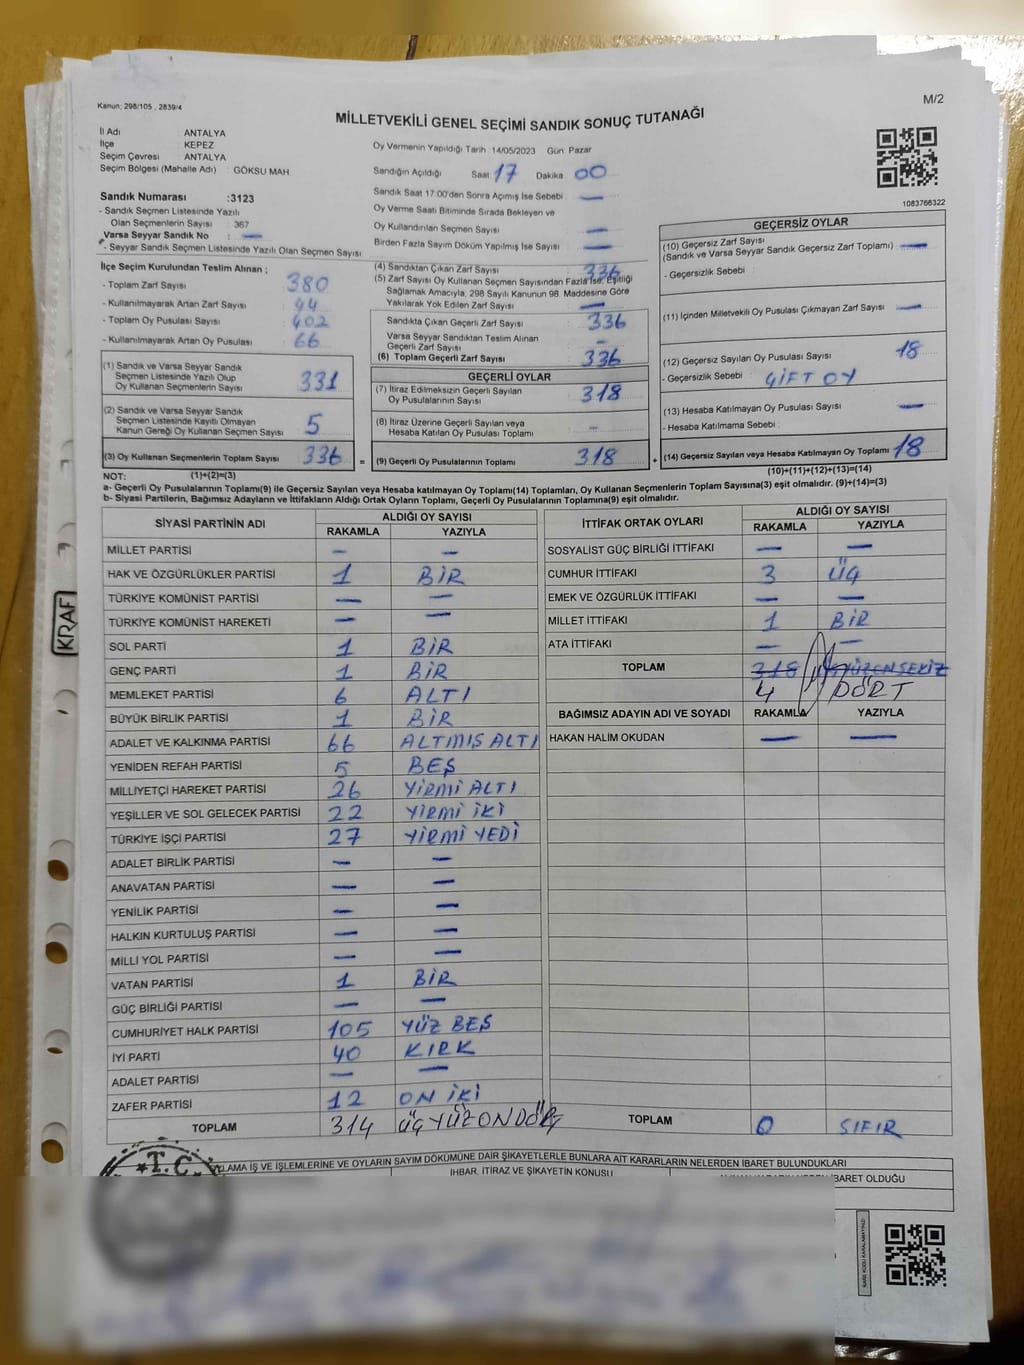 Kanun; 298/105 , 2839/4
M/2
MİLLETVEKİLİ GENEL SEÇİMİ SANDIK SONUÇ TUTANAĞI
İl Adı ANTALYA
İlçe KEPEZ
Seçim Çevresi ANTALYA
Seçim Bölgesi (Mahalle Adı) : GÖKSU MAH
Sandık Numarası :3123
- Sandık Seçmen Listesinde Yazılı
Olan Seçmenlerin Sayısı : 367
Varsa Seyyar Sandık No : —
- Seyyar Sandık Seçmen Listesinde Yazılı Olan Seçmen Sayısı
İlçe Seçim Kurulundan Teslim Alınan ;
- Toplam Zarf Sayısı : 380
- Kullanılmayarak Artan Zarf Sayısı : 44
- Toplam Oy Pusulası Sayısı : 402
- Kullanılmayarak Artan Oy Pusulası : 66
(1) Sandık ve Varsa Seyyar Sandık
Seçmen Listesinde Yazılı Olup
Oy Kullanan Seçmenlerin Sayısı : 331
(2) Sandık ve Varsa Seyyar Sandık
Seçmen Listesinde Kayıtlı Olmayan
Kanun Gereği Oy Kullanan Seçmen Sayısı : 5
(3) Oy Kullanan Seçmenlerin Toplam Sayısı : 336 =
Oy Vermenin Yapıldığı Tarih :14/05/2023 Gün: Pazar
Sandığın Açıldığı Saat 17 Dakika 00
Sandık Saat 17:00'den Sonra Açımış İse Sebebi : —
Oy Verme Saati Bitiminde Sırada Bekleyen ve
Oy Kullandırılan Seçmen Sayısı : —
Birden Fazla Sayım Döküm Yapılmış İse Sayısı : —
(4) Sandıktan Çıkan Zarf Sayısı : 336
(5) Zarf Sayısı Oy Kullanan Seçmen Sayısından Fazla İse, Eşitliği
Sağlamak Amacıyla, 298 Sayılı Kanunun 98. Maddesine Göre
Yakılarak Yok Edilen Zarf Sayısı : —
Sandıkta Çıkan Geçerli Zarf Sayısı : 336
Varsa Seyyar Sandıktan Teslim Alınan
Geçerli Zarf Sayısı : —
(6) Toplam Geçerli Zarf Sayısı : 336
GEÇERLİ OYLAR
(7) İtiraz Edilmeksizin Geçerli Sayılan
Oy Pusulalarının Sayısı : 318
(8) İtiraz Üzerine Geçerli Sayılan veya
Hesaba Katılan Oy Pusulası Toplamı : —
(9) Geçerli Oy Pusulalarının Toplamı : 318 +
1083766322
GEÇERSİZ OYLAR
(10) Geçersiz Zarf Sayısı : —
(Sandık ve Varsa Seyyar Sandık Geçersiz Zarf Toplamı)
- Geçersizlik Sebebi
(11) İçinden Milletvekili Oy Pusulası Çıkmayan Zarf Sayısı : —
(12) Geçersiz Sayılan Oy Pusulası Sayısı : 18
- Geçersizlik Sebebi : ÇİFT OY
(13) Hesaba Katılmayan Oy Pusulası Sayısı : —
- Hesaba Katılmama Sebebi :
(14) Geçersiz Sayılan veya Hesaba Katılmayan Oy Toplamı : 18
NOT: (1)+(2)=(3)
(10)+(11)+(12)+(13)=(14)
a- Geçerli Oy Pusulalarının Toplamı(9) ile Geçersiz Sayılan veya Hesaba katılmayan Oy Toplamı(14) Toplamları, Oy Kullanan Seçmenlerin Toplam Sayısına(3) eşit olmalıdır. (9)+(14)=(3)
b- Siyasi Partilerin, Bağımsız Adayların ve İttifakların Aldığı Ortak Oyların Toplamı, Geçerli Oy Pusulalarının Toplamına(9) eşit olmalıdır.
SİYASİ PARTİNİN ADI ALDIĞI OY SAYISI
RAKAMLA YAZIYLA
MİLLET PARTİSİ — —
HAK VE ÖZGÜRLÜKLER PARTİSİ 1 BİR
TÜRKİYE KOMÜNİST PARTİSİ — —
TÜRKİYE KOMÜNİST HAREKETİ — —
SOL PARTİ 1 BİR
GENÇ PARTİ 1 BİR
MEMLEKET PARTİSİ 6 ALTI
BÜYÜK BİRLİK PARTİSİ 1 BİR
ADALET VE KALKINMA PARTİSİ 66 ALTMIŞ ALTI
YENİDEN REFAH PARTİSİ 5 BEŞ
MİLLİYETÇİ HAREKET PARTİSİ 26 YİRMİ ALTI
YEŞİLLER VE SOL GELECEK PARTİSİ 22 YİRMİ İKİ
TÜRKİYE İŞÇİ PARTİSİ 27 YİRMİ YEDİ
ADALET BİRLİK PARTİSİ — —
ANAVATAN PARTİSİ — —
YENİLİK PARTİSİ — —
HALKIN KURTULUŞ PARTİSİ — —
MİLLİ YOL PARTİSİ — —
VATAN PARTİSİ 1 BİR
GÜÇ BİRLİĞİ PARTİSİ — —
CUMHURİYET HALK PARTİSİ 105 YÜZ BEŞ
İYİ PARTİ 40 KIRK
ADALET PARTİSİ — —
ZAFER PARTİSİ 12 ON İKİ
TOPLAM 314 ÜÇYÜZONDÖRT
İTTİFAK ORTAK OYLARI ALDIĞI OY SAYISI
RAKAMLA YAZIYLA
SOSYALİST GÜÇ BİRLİĞİ İTTİFAKI — —
CUMHUR İTTİFAKI 3 ÜÇ
EMEK VE ÖZGÜRLÜK İTTİFAKI — —
MİLLET İTTİFAKI 1 BİR
ATA İTTİFAKI — —
TOPLAM 318
4 DÖRT
BAĞIMSIZ ADAYIN ADI VE SOYADI RAKAMLA YAZIYLA
HAKAN HALİM OKUDAN — —
TOPLAM 0 SIFIR
KRAF
T.C
İŞ VE İŞLEMLERİNE VE OYLARIN SAYIM DÖKÜMÜNE DAİR ŞİKAYETLERLE BUNLARA AİT KARARLARIN NELERDEN İBARET BULUNDUKLARI
İHBAR, İTİRAZ VE ŞİKAYETİN KONUSU
İBARET OLDUĞU